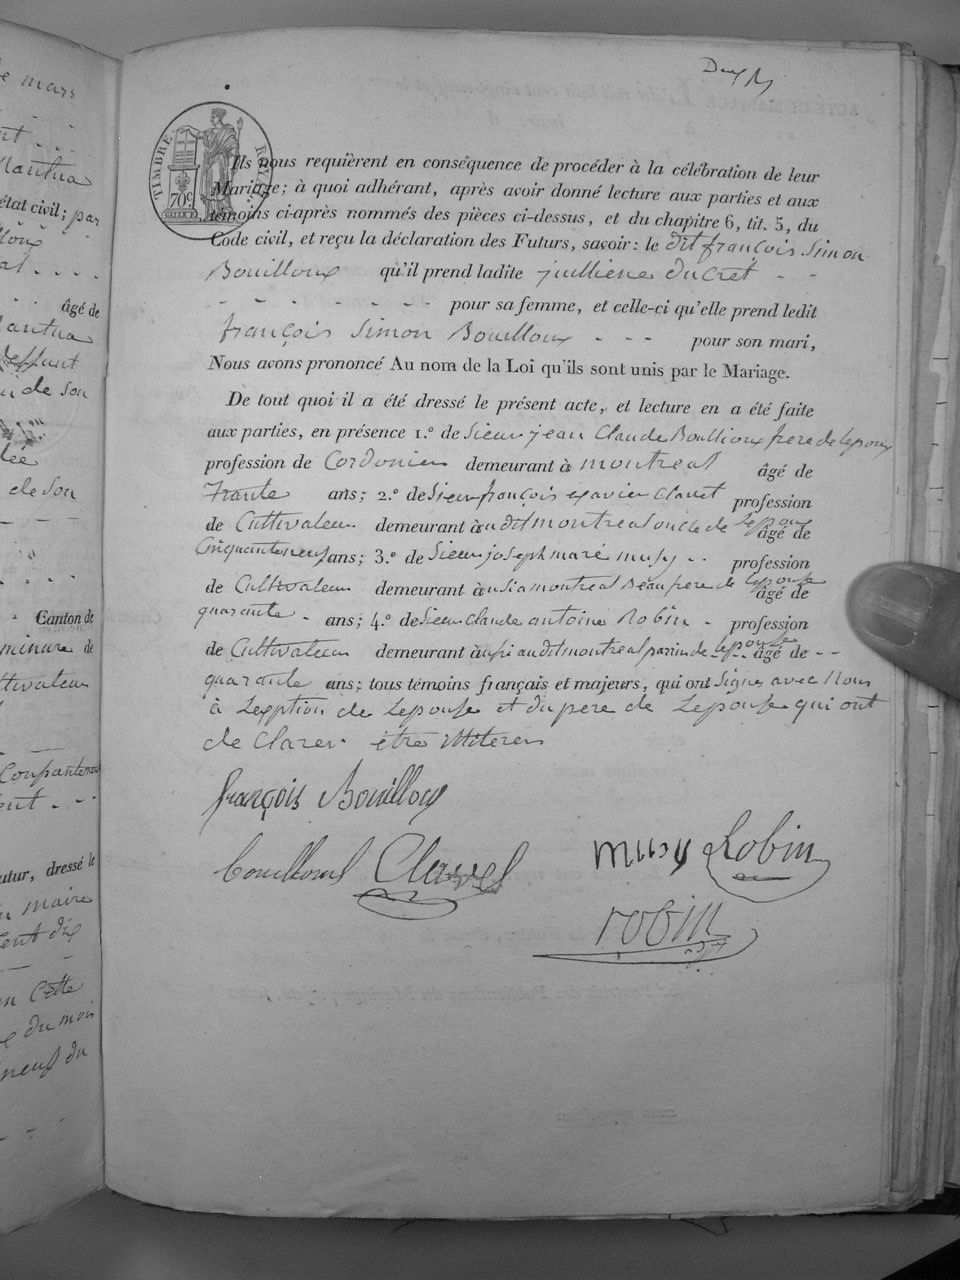 e mars
nt
Nantua
état civil; par
al
âgé de
antua
deffunt
de son
lée
de son
Canton de
mineure de
ltivateur
ut
utur, dressé le
maire
cent dix
en Cette
du mois
neuf du
TIMBRE ROYAL
70c
Ils nous requièrent en conséquence de procéder à la célébration de leur
Mariage; à quoi adhérant, après avoir donné lecture aux parties et aux
témoins ci-après nommés des pièces ci-dessus, et du chapitre 6, tit. 5, du
Code civil, et reçu la déclaration des Futurs, savoir: le dit françois Simon
Bouilloux qu'il prend ladite juilliene Ducret - -
- - - - - - - pour sa femme, et celle-ci qu'elle prend ledit
françois Simon Bouilloux - - - pour son mari,
Nous avons prononcé Au nom de la Loi qu'ils sont unis par le Mariage.
De tout quoi il a été dressé le présent acte, et lecture en a été faite
aux parties, en présence 1.° de Sieur jean Claude Boullioux frere de lepoux
profession de Cordonier demeurant à montreal âgé de
Trante ans; 2.° de Sieur françois exavier Clavet profession
de Cultivateur demeurant à audit montreal oncle de lepoux âgé de
Cinquante neuf ans; 3.° de Sieur joseph marie musy - - profession
de Cultivateur demeurant à montreal Beau pere de lepouse âgé de
quarante - ans; 4.° de Sieur Claude antoine Robin - profession
de Cultivateur demeurant à audit montreal de lepouse âgé de - -
quarante ans; tous témoins français et majeurs, qui ont Signé avec Nous
à Lexption de Lepouse et du pere de Lepouse qui ont
de Clarer être illiteres
françois Bouilloux
bouilloux Clavel musy Robin
robin